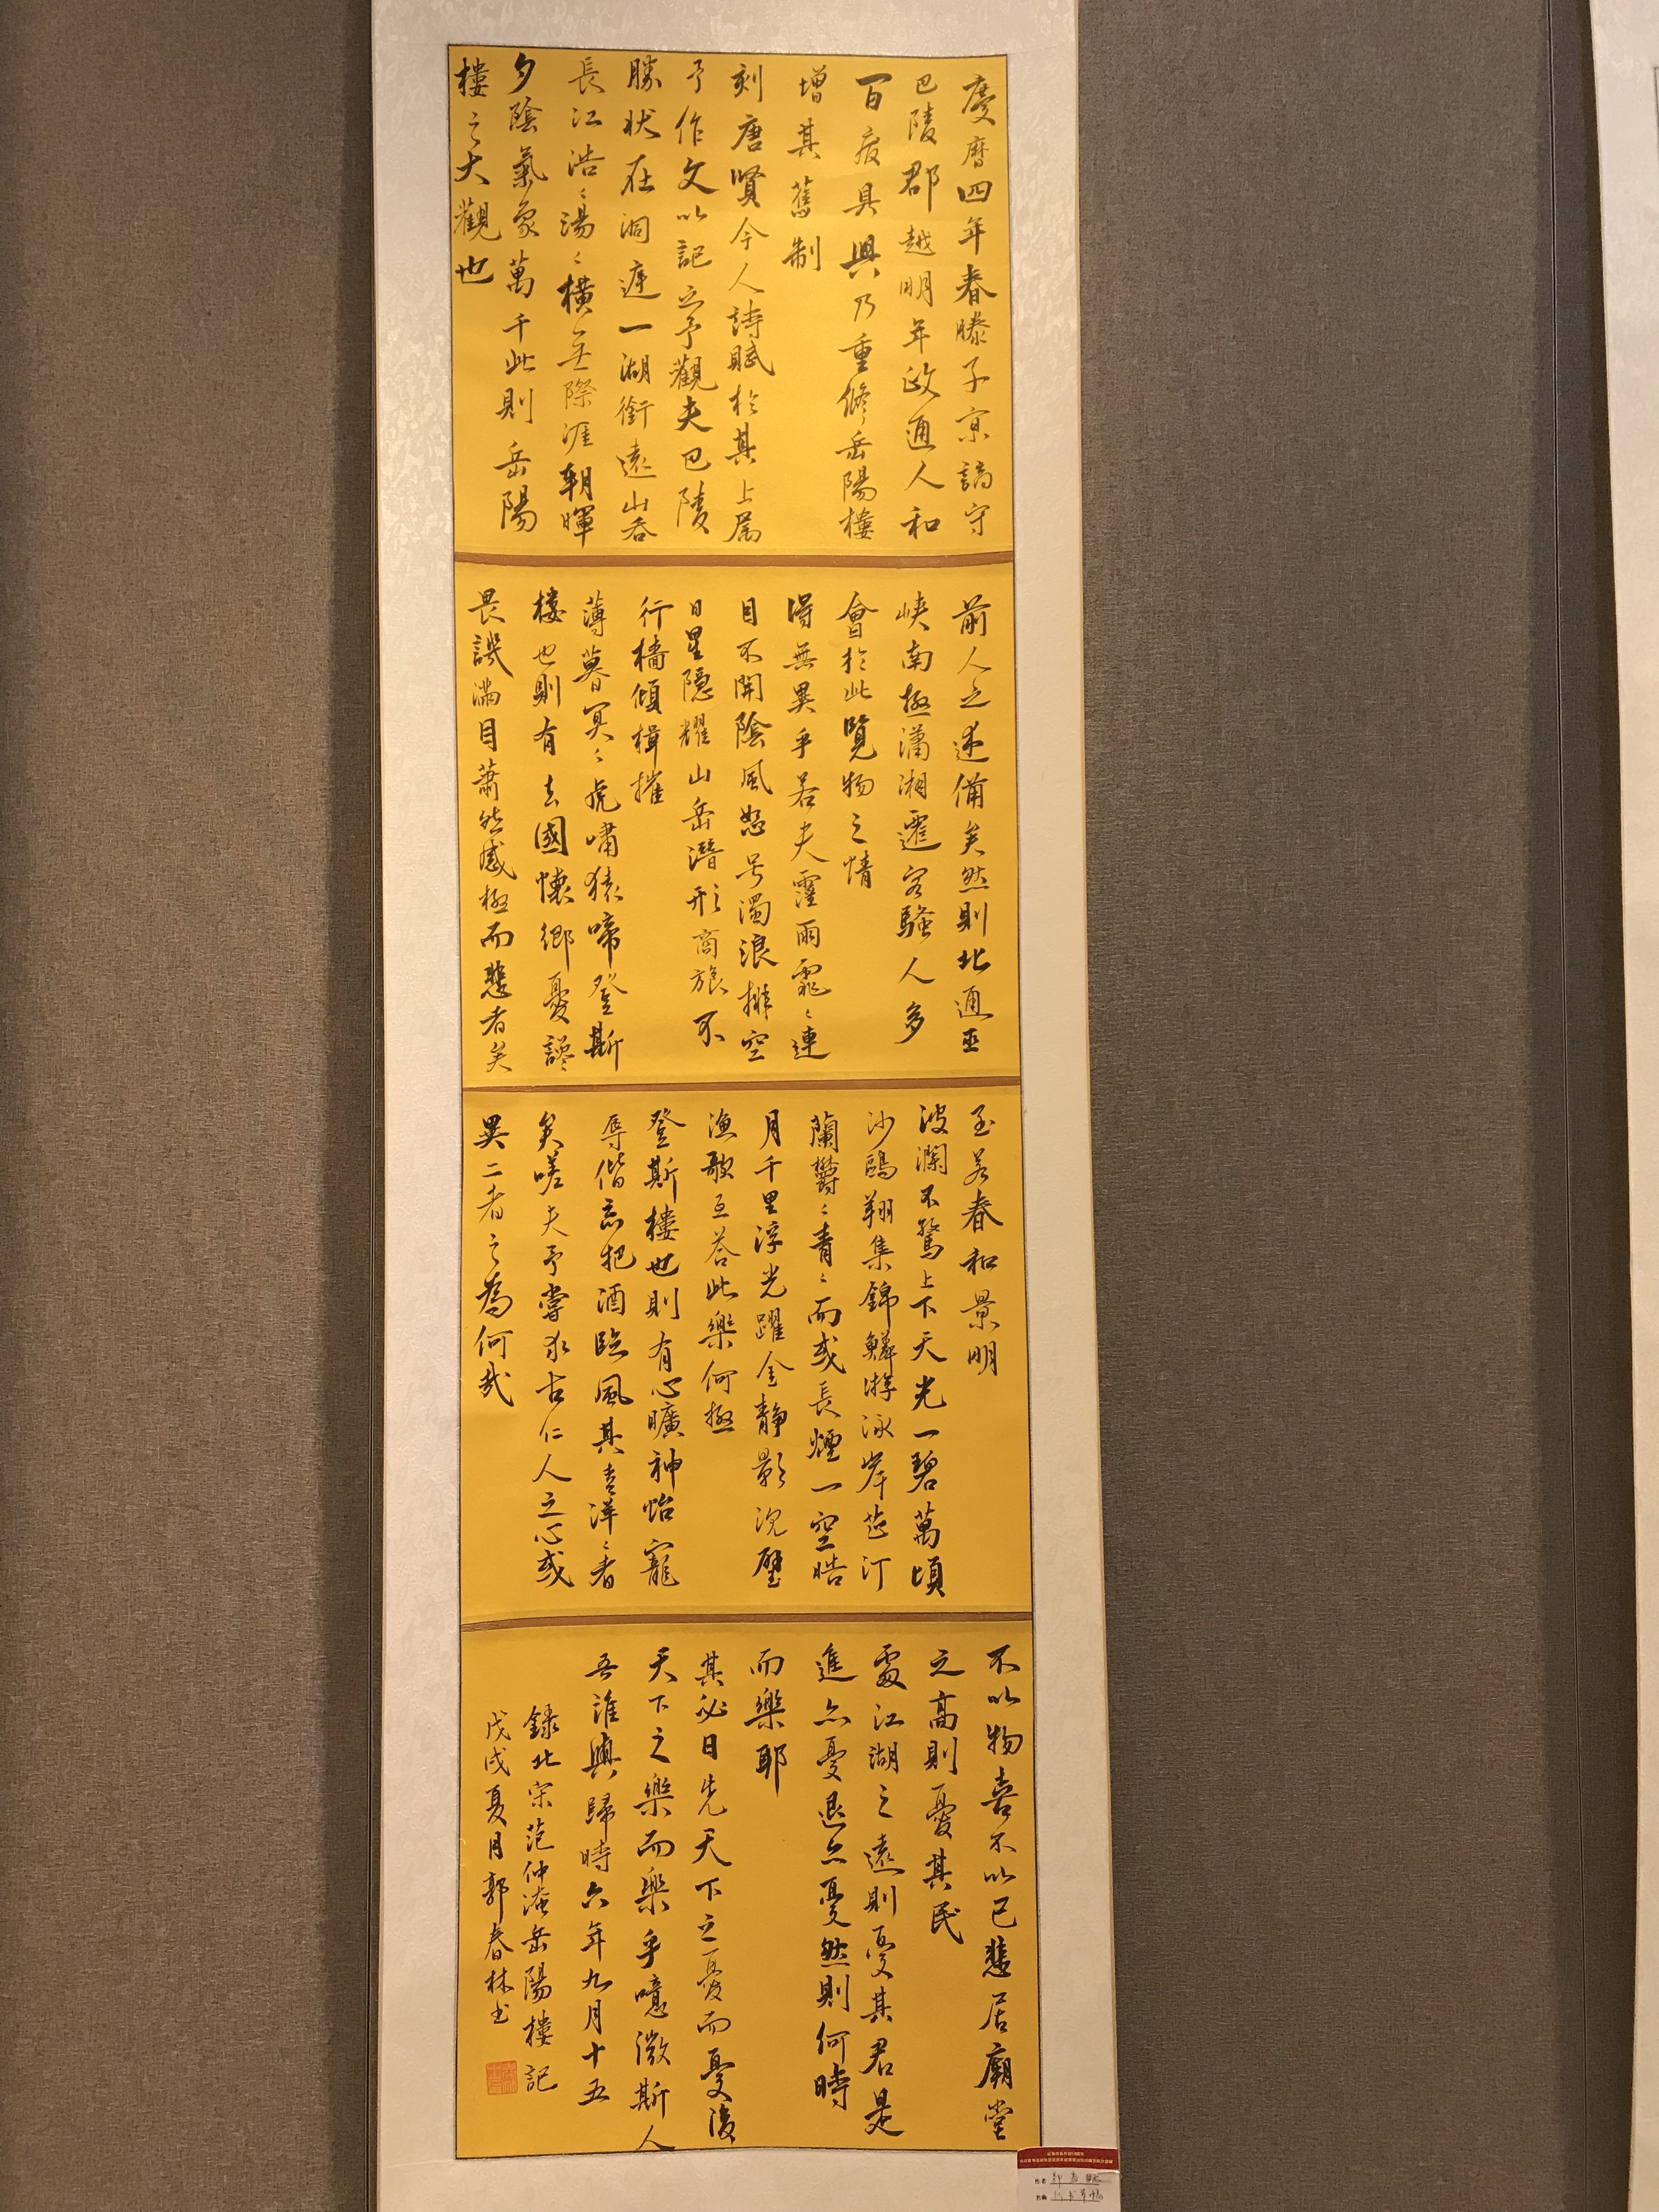 慶曆四年春滕子京謫守
巴陵郡越明年政通人和
百废具興乃重修岳陽樓
增其舊制
刻唐賢今人詩賦於其上属
予作文以記之予觀夫巴陵
勝状在洞庭一湖銜遠山吞
長江浩〻湯〻橫無際涯朝暉
夕陰氣象萬千此則岳陽
樓之大觀也
前人之述備矣然則北通巫
峡南極瀟湘遷客騷人多
會於此覽物之情
得無異乎若夫霪雨霏〻連
月不開陰風怒号濁浪排空
日星隱耀山岳潛形商旅不
行檣傾楫摧
薄暮冥〻虎嘯猿啼登斯
樓也則有去國懷鄉憂讒
畏譏滿目蕭然感極而悲者矣
至若春和景明
波瀾不驚上下天光一碧萬頃
沙鷗翔集錦鱗游泳岸芷汀
蘭欝〻青〻而或長煙一空皓
月千里浮光躍金静影沉璧
漁歌互荅此樂何極
登斯樓也則有心曠神怡寵
辱偕忘把酒臨風其喜洋〻者
矣嗟夫予嘗求古仁人之心或
異二者之為何哉
不以物喜不以己悲居廟堂
之高則憂其民
處江湖之遠則憂其君是
進亦憂退亦憂然則何時
而樂耶
其必曰先天下之憂而憂後
天下之樂而樂乎噫微斯人
吾誰與歸時六年九月十五
録北宋范仲淹岳陽樓記
戊戌夏月郭春林书